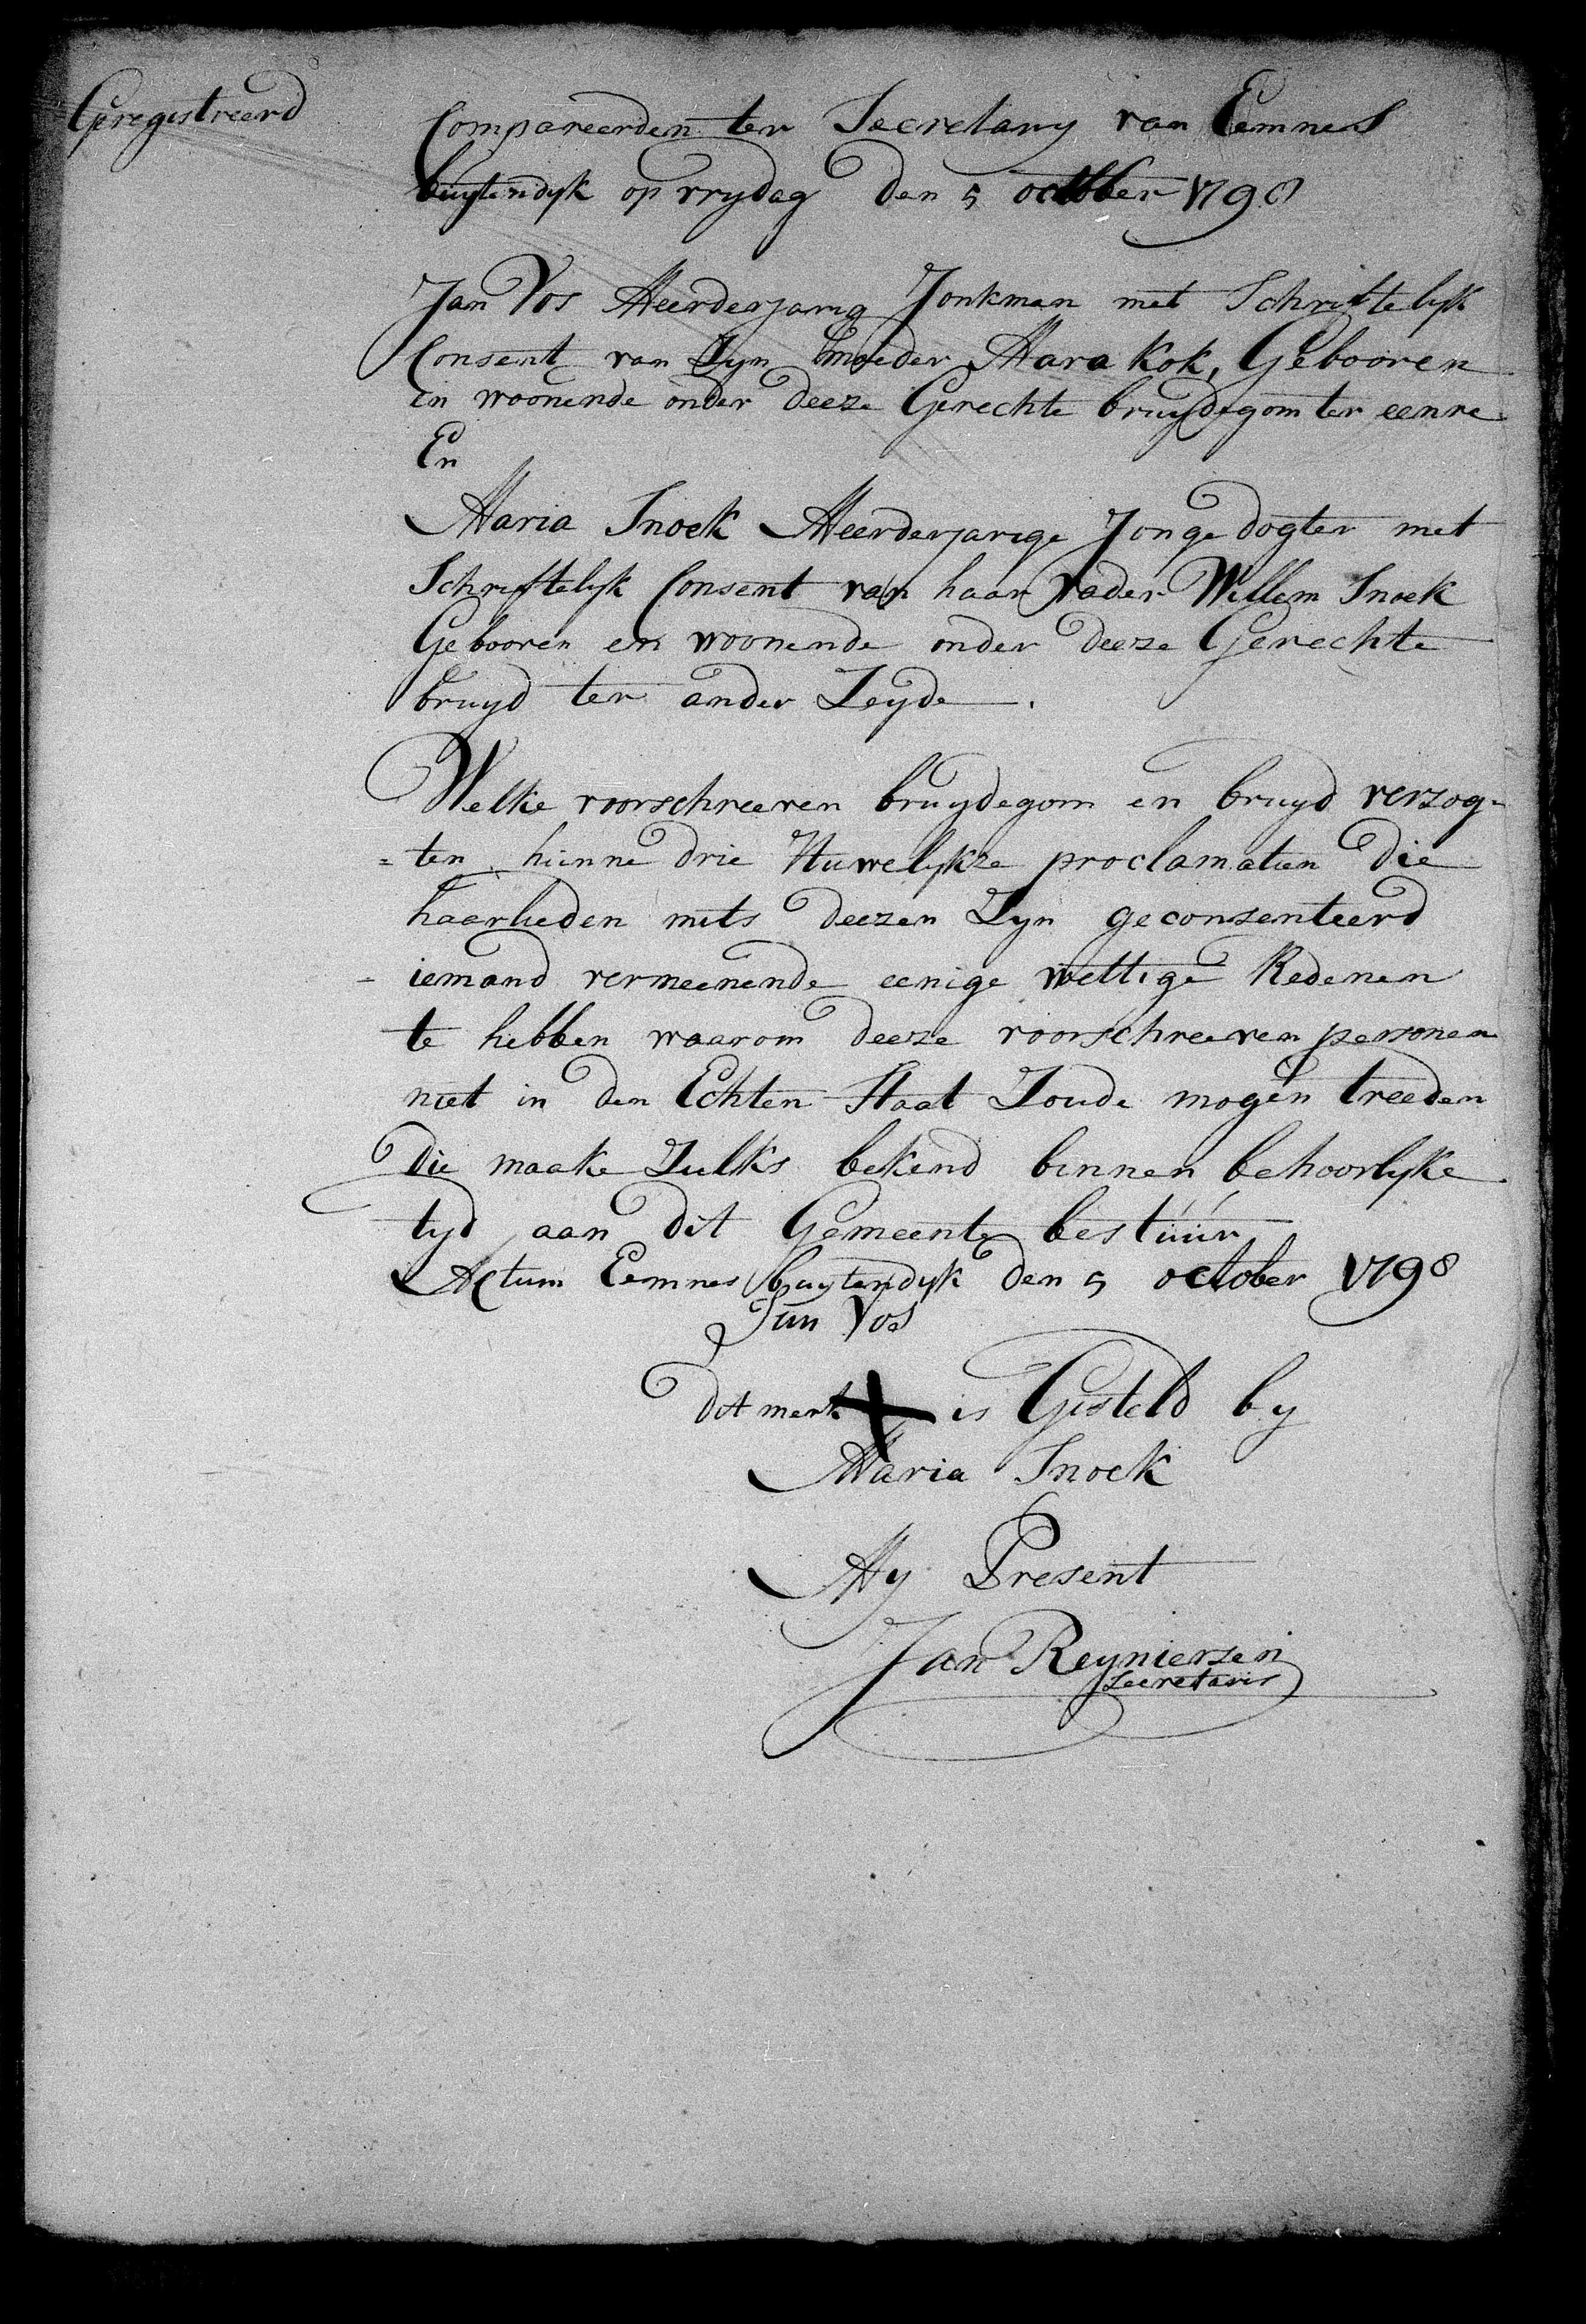 Geregistreerd
Compareerden ter Secretary van Eemnes
buytendyk op vrydag den 5 october 1798
Jan Vos Meerderjarig Jonkman met Schriftelyk
Consent van Zyn moeder Mara Kok, Gebooren
en woonende onder deeze Gerechte bruydegom ter eenre
En
Maria Snoek Meerderjarige Jonge dogter met
Schriftelyk Consent van haar vader Willem Snoek
Gebooren en woonende onder deeze Gerechte
bruyd ter ander Zeyde.
Welke voorschreeven bruydegom en bruyd verzog=
=ten hunne drie Huwelykze proclamatien die
haarlieden mits deezen Zyn geconsenteerd
- iemand vermeenende eenige wettige Redenen
te hebben waarom deeze voorschreeven personen
niet in den Echten Staat Zoude mogen treeden
die maake Zulks bekend binnen behoorlyke
tyd aan dit Gemeente bestuur
Actum Eemnes buytendyk den 5 october 1798
Jan Vos
dit merk X is Gesteld by
Maria Snoek
My Present
Jan Reynierzen
Secretaris